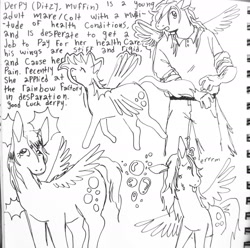 Derpy (Ditzy, Muffin) is a young
adult mare/Colt with a Multi-
tude of health Conditions,
and is desperate to get a
Job to Pay For her health Care.
his wings are stiff and rigid,
and Cause her
Pain. recently
She applied at
the rainbow Factory
in desparation.
good luck derpy.